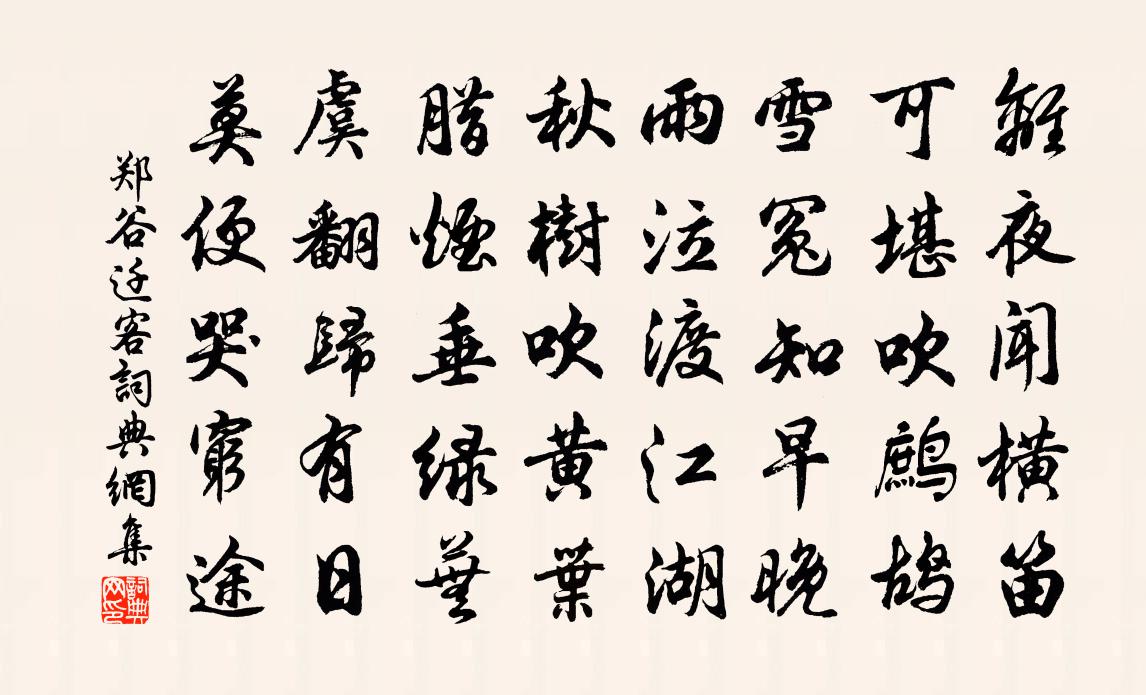 離夜聞橫笛
可堪吹鷓鴣
雪冤知早晚
雨泣渡江湖
秋樹吹黃葉
腊煙垂綠蕪
虞翻歸有日
莫便哭窮途
郑谷迁客詞典網集
詞典网印